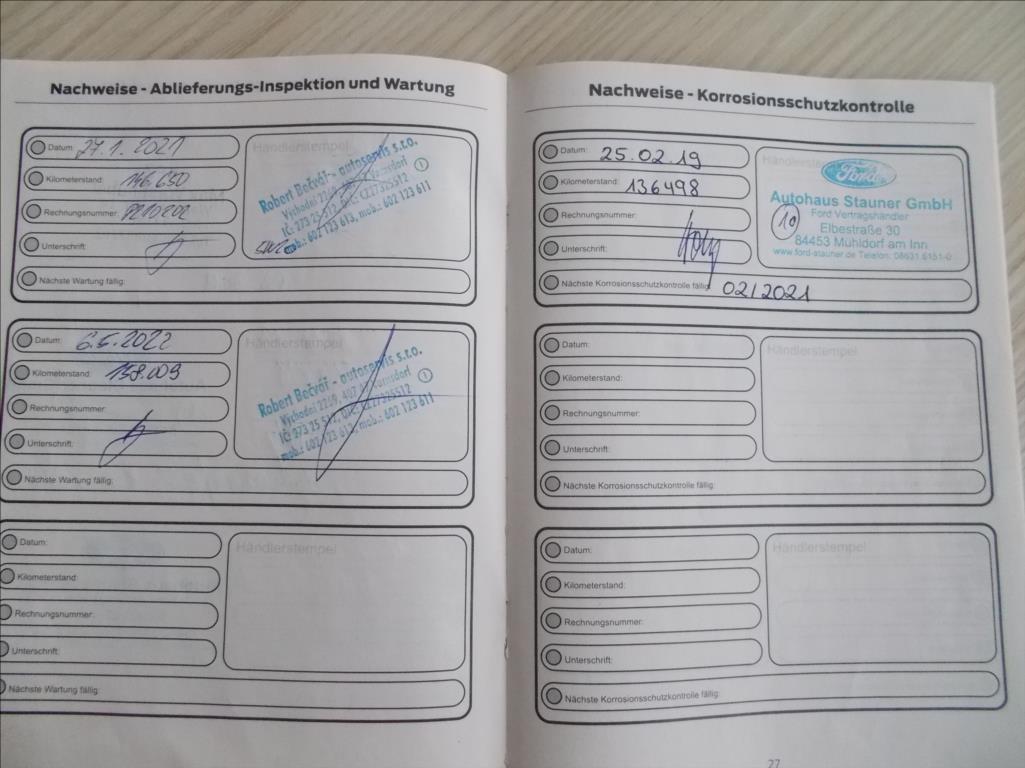 Nachweise - Ablieferungs-Inspektion und Wartung
Datum: 27.1.2021
Kilometerstand: 146.650
Rechnungsnummer: 8210202
Unterschrift:
Nächste Wartung fällig:
Händlerstempel
Robert Bečvář - autoservis s.r.o.
Východní 2269, 407 47 Varnsdorf
IČ: 273 25 512, DIČ: CZ27325512 1
mob.: 602 123 613, mob.: 602 123 611
Datum: 6.5.2022
Kilometerstand: 158.009
Rechnungsnummer:
Unterschrift:
Nächste Wartung fällig:
Händlerstempel
Robert Bečvář - autoservis s.r.o.
Východní 2269, 407 47 Varnsdorf
IČ: 273 25 512, DIČ: CZ27325512 1
mob.: 602 123 613, mob.: 602 123 611
Datum:
Kilometerstand:
Rechnungsnummer:
Unterschrift:
Nächste Wartung fällig:
Händlerstempel
Nachweise - Korrosionsschutzkontrolle
Datum: 25.02.19
Kilometerstand: 136498
Rechnungsnummer:
Unterschrift:
Nächste Korrosionsschutzkontrolle fällig: 02/2021
Händlerstempel
Ford
Autohaus Stauner GmbH
10 Ford Vertragshändler
Elbestraße 30
84453 Mühldorf am Inn
www.ford-stauner.de Telefon: 08631 6151-0
Datum:
Kilometerstand:
Rechnungsnummer:
Unterschrift:
Nächste Korrosionsschutzkontrolle fällig:
Händlerstempel
Datum:
Kilometerstand:
Rechnungsnummer:
Unterschrift:
Nächste Korrosionsschutzkontrolle fällig:
Händlerstempel
27